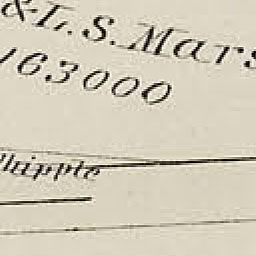 & L. S. Mars
163000
Whipple